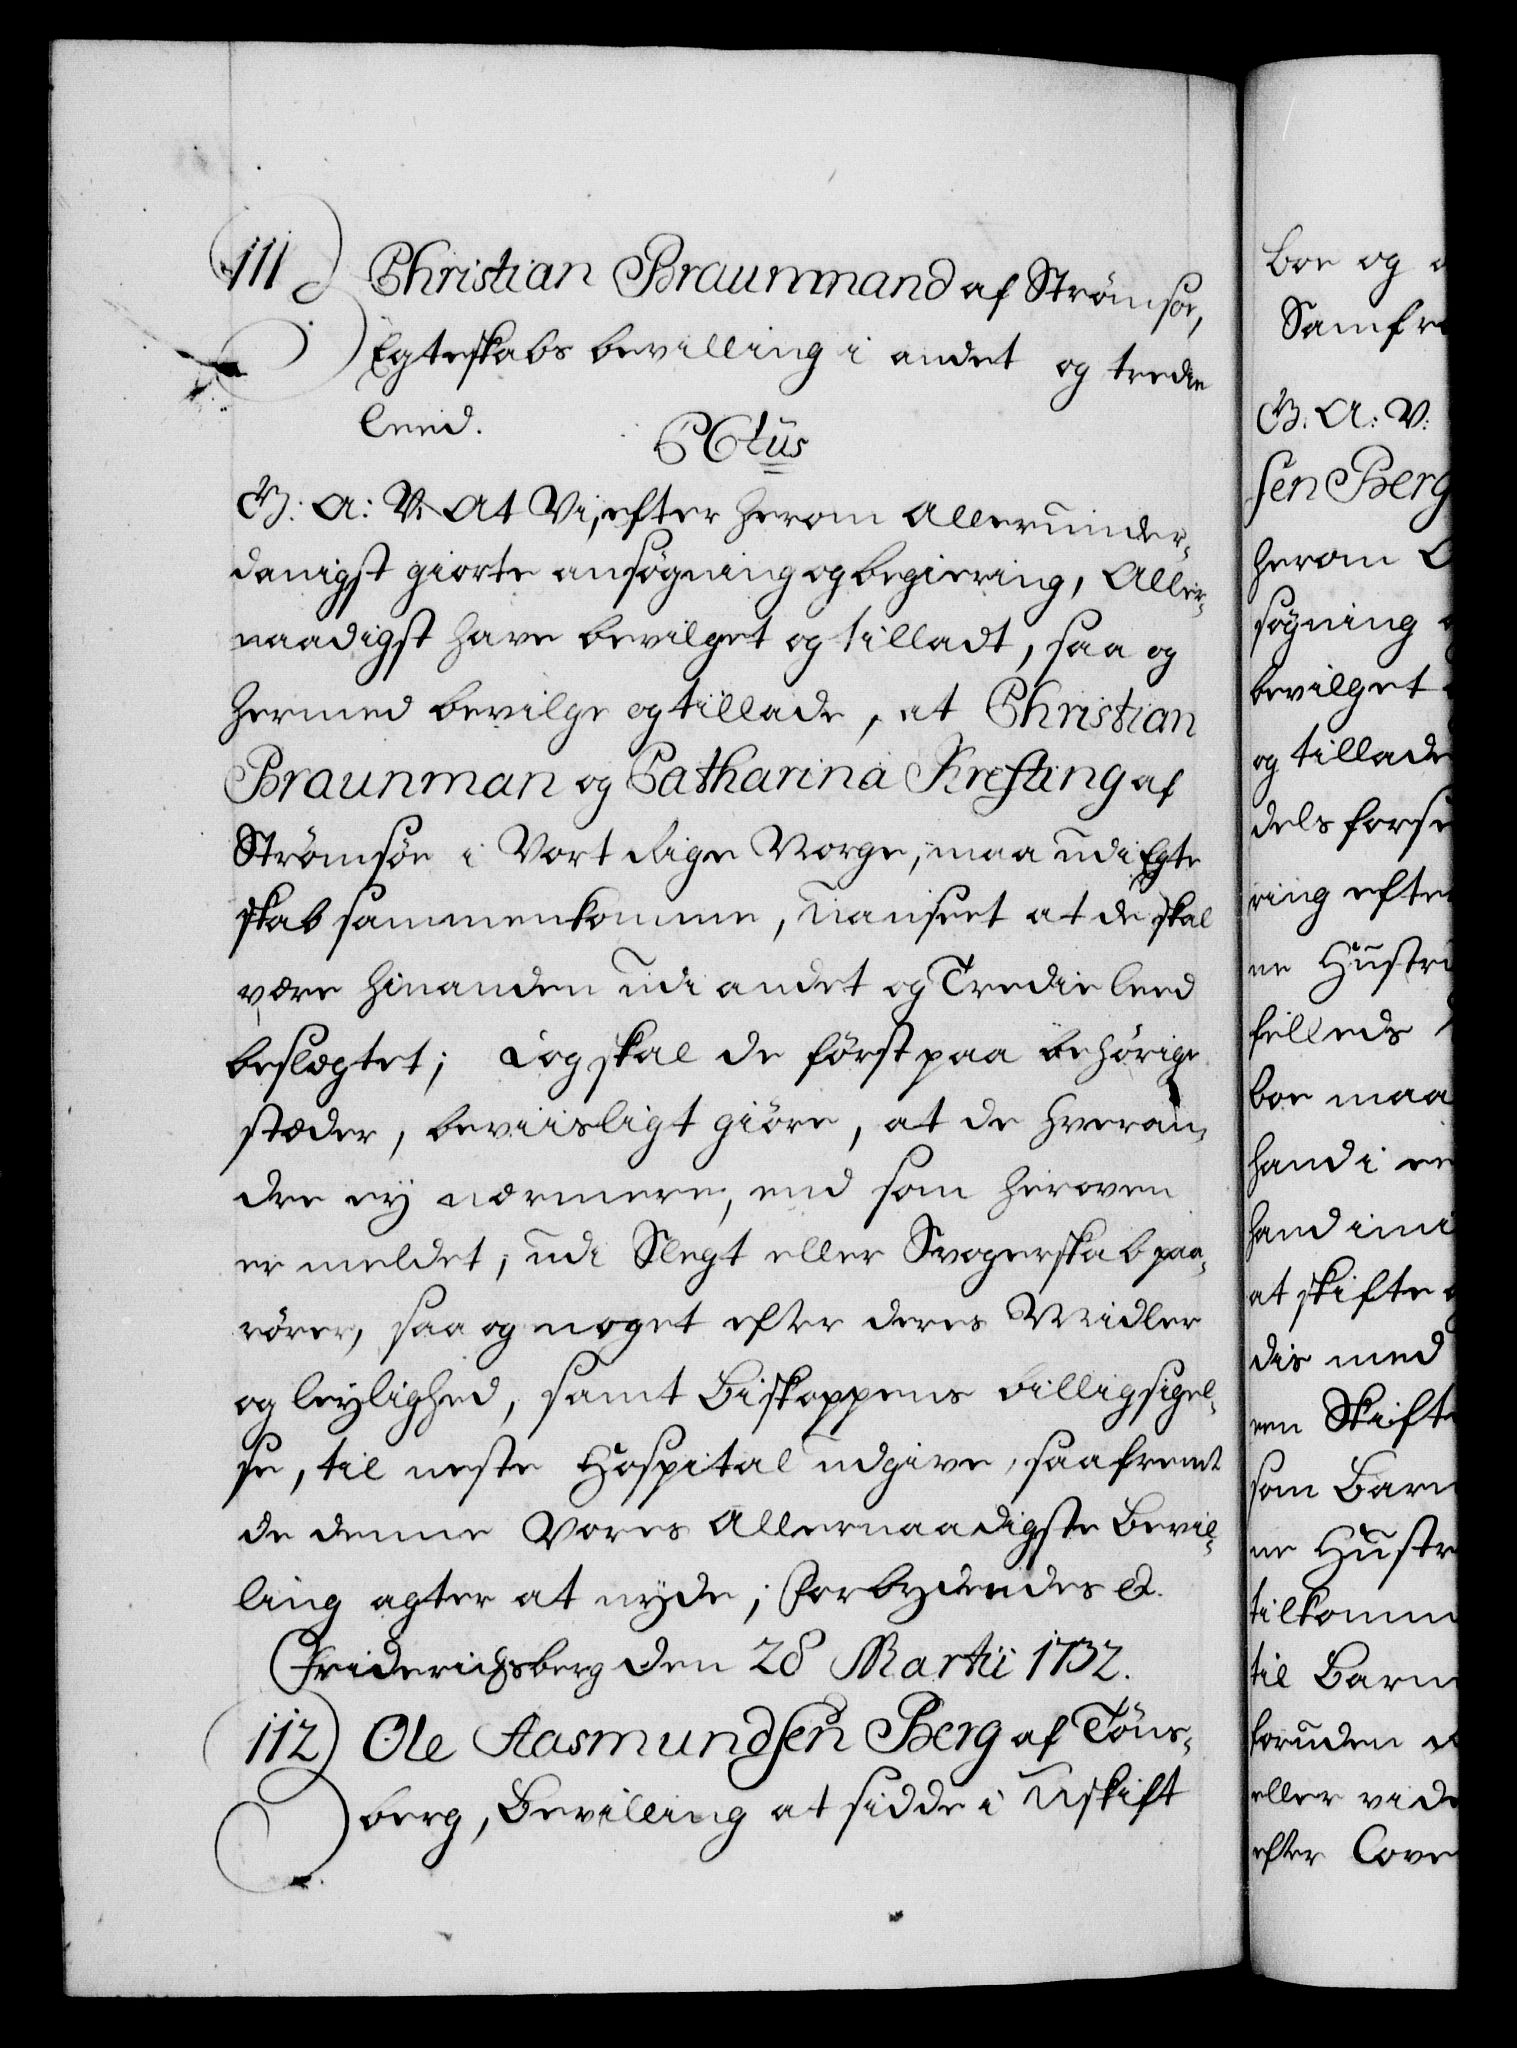 111 Christian Braunmand af Strömsöe,
Egteskabs bevilling i andet og tredie
leed.
C6tus
G: A: V: At Vi, efter herom Allerunder-
danigst giorte ansøgning og begiering, Aller-
naadigst have bevilget og tilladt, saa og
hermed bevilge og tillade, at Christian
Braunman og Catharina Krefting af
Strömsöe i Vort Rige Norge, maa udi Egte
skab sammenkomme, Uanseet at de skal
være hinanden udi andet og Tredie leed
beslægtet; Dog skal de först paa behörige
stæder, beviisligt giöre, at de hveran-
dre ey nærmere, end som heroven
er meldet, udi Slegt eller Svogerskab paa-
rörer, saa og noget efter deres Midler
og leylighed, samt Biskoppens billigsigel-
se, til neste Hospital udgive, saafremt
de denne Vores Allernaadigste Bevil-
ling agter at nyde; Forbydendes &.
Friderichsberg den 28 Martii 1732.
112) Ole Aasmundsen Berg af Töns-
berg, Bevilling at sidde i Uskift
Boe og
Samfre
G. A: V:
sen Berg
herom
søgning
bevilget
og tillade
dels forse
ring efter
ne Hustru
felleds
boe maa
hand i
hand imi
at skifte
dis med
een Skifte
som Barn
ne Hustr
tilkomm
til Barn
foruden
eller vide
efter Love